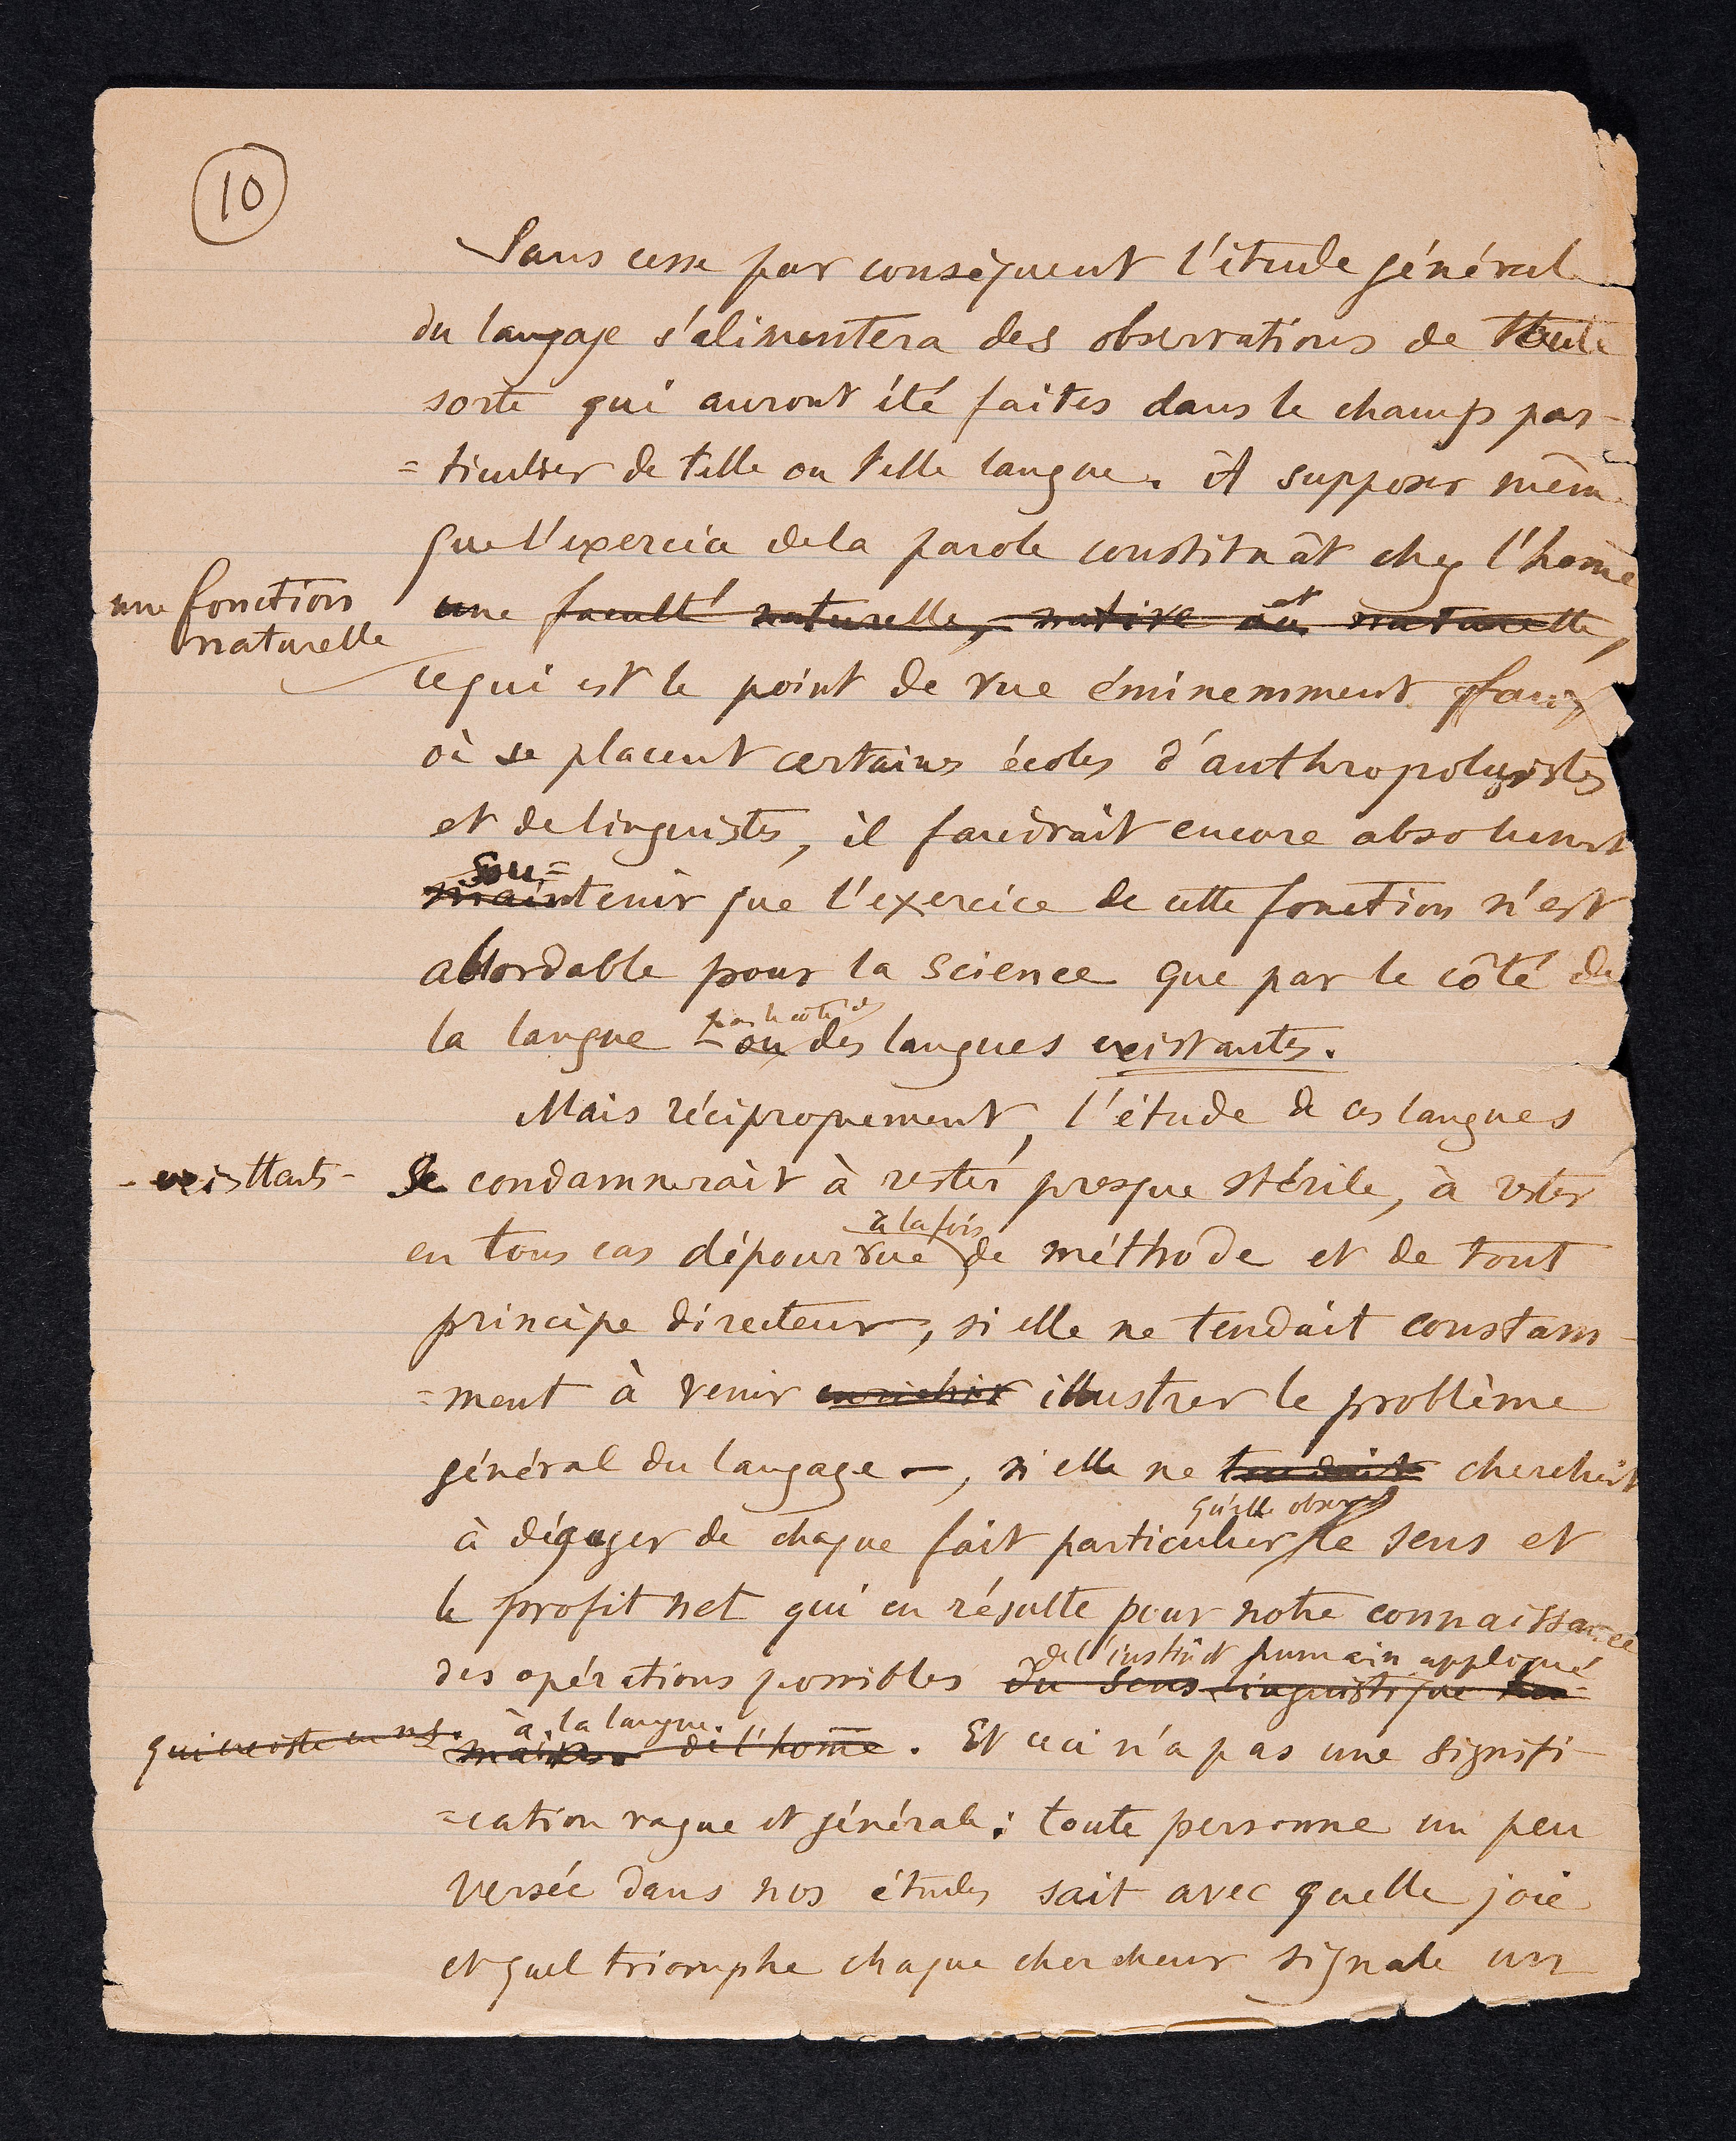 10
Sans cesse par conséquent l'étude général
du langage s'alimentera des observations de toute
sorte qui auront été faites dans le champ par-
=ticulier de telle ou telle langue. A supposer mêm
que l'exercice de la parole constituât chez l'home
une fonction
naturelle
une faculté naturelle, native et naturelle,
ce qui est le point de vue éminemment faux
où se placent certaines écoles d'anthropologistes
et de linguistes, il faudrait encore absolument
sou=
maintenir que l'exercice de cette fonction n'est
abordable pour la science que par le côté de
par le côté d
la langue - ou des langues existantes.
Mais réciproquement, l'étude de ces langues
- existants - se condamnerait à rester presque stérile, à rester
à la fois
en tous cas dépourvue de méthode et de tout
principe directeur, si elle ne tendait constam-
=ment à venir enrichir illustrer le problème
général du langage –, si elle ne tendait cherchait
qu'elle observe
à dégager de chaque fait particulier le sens et
le profit net qui en résulte pour notre connaissance
de l'instinct humain appliqué
des opérations possibles du sens linguistique hu-
à la langue.
qui existe en ns. main de l'home. Et ceci n'a pas une signifi-
=cation vague et générale: toute personne un peu
versée dans nos études sait avec quelle joie
et quel triomphe chaque chercheur signale un